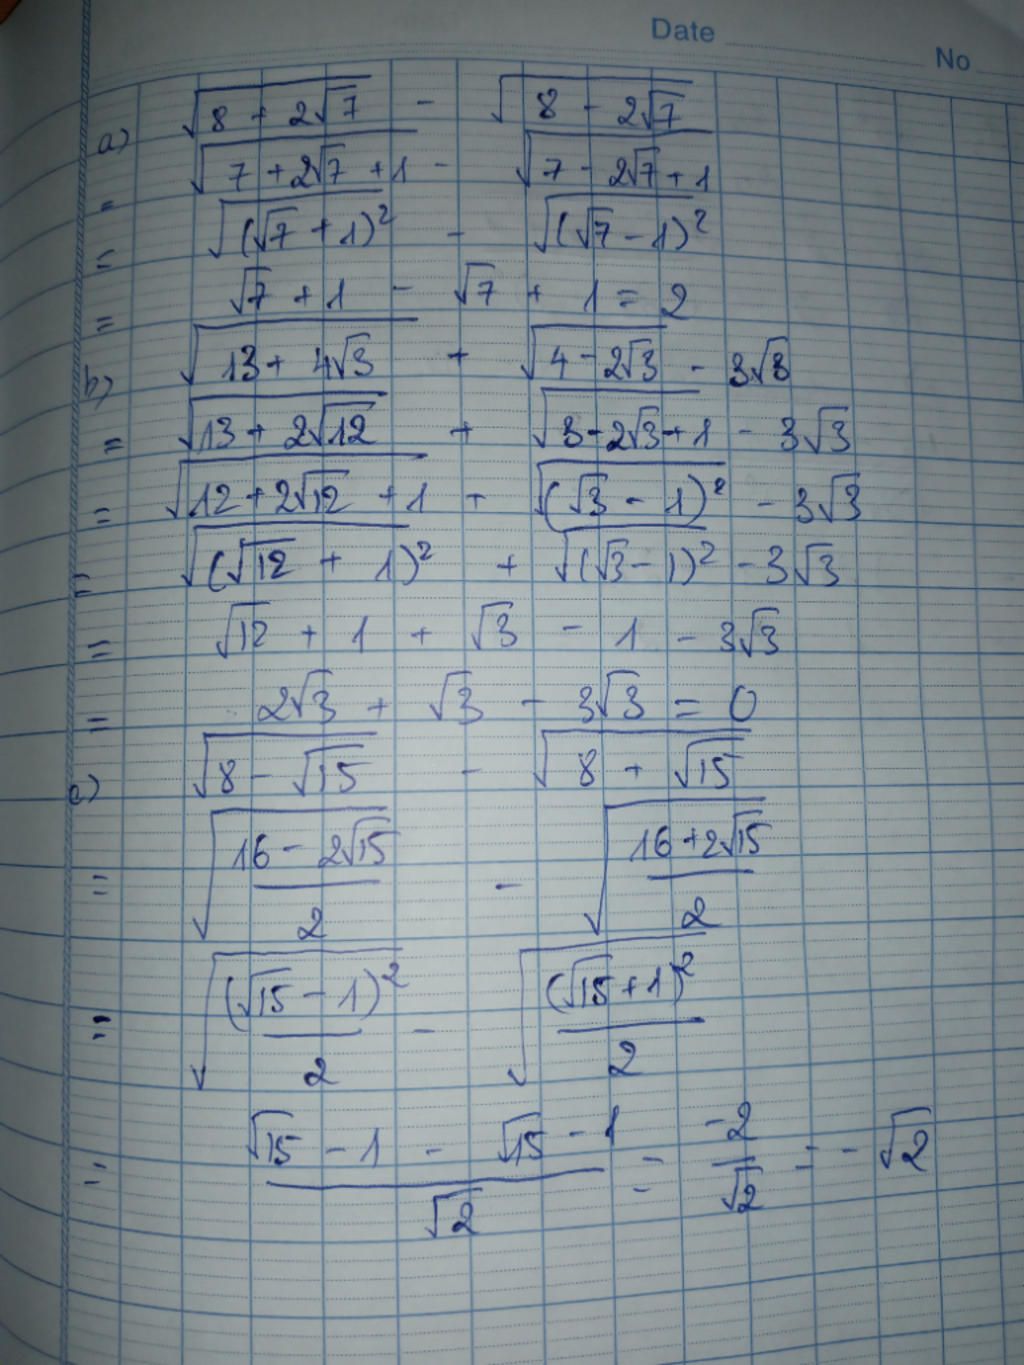 Date
No
a) √(8 + 2√7) - √(8 - 2√7)
= √(7 + 2√7 + 1) - √(7 - 2√7 + 1)
= √((√7 + 1)²) - √((√7 - 1)²)
= √7 + 1 - √7 + 1 = 2
b) √(13 + 4√3) + √(4 - 2√3) - 3√3
= √(13 + 2√12) + √(3 - 2√3 + 1) - 3√3
= √(12 + 2√12 + 1) + √((√3 - 1)²) - 3√3
= √((√12 + 1)²) + √((√3 - 1)²) - 3√3
= √12 + 1 + √3 - 1 - 3√3
= 2√3 + √3 - 3√3 = 0
c) √(8 - √15) - √(8 + √15)
= √((16 - 2√15)/2) - √((16 + 2√15)/2)
= √((√15 - 1)²/2) - √((√15 + 1)²/2)
= (√15 - 1 - √15 - 1)/√2 = -2/√2 = -√2